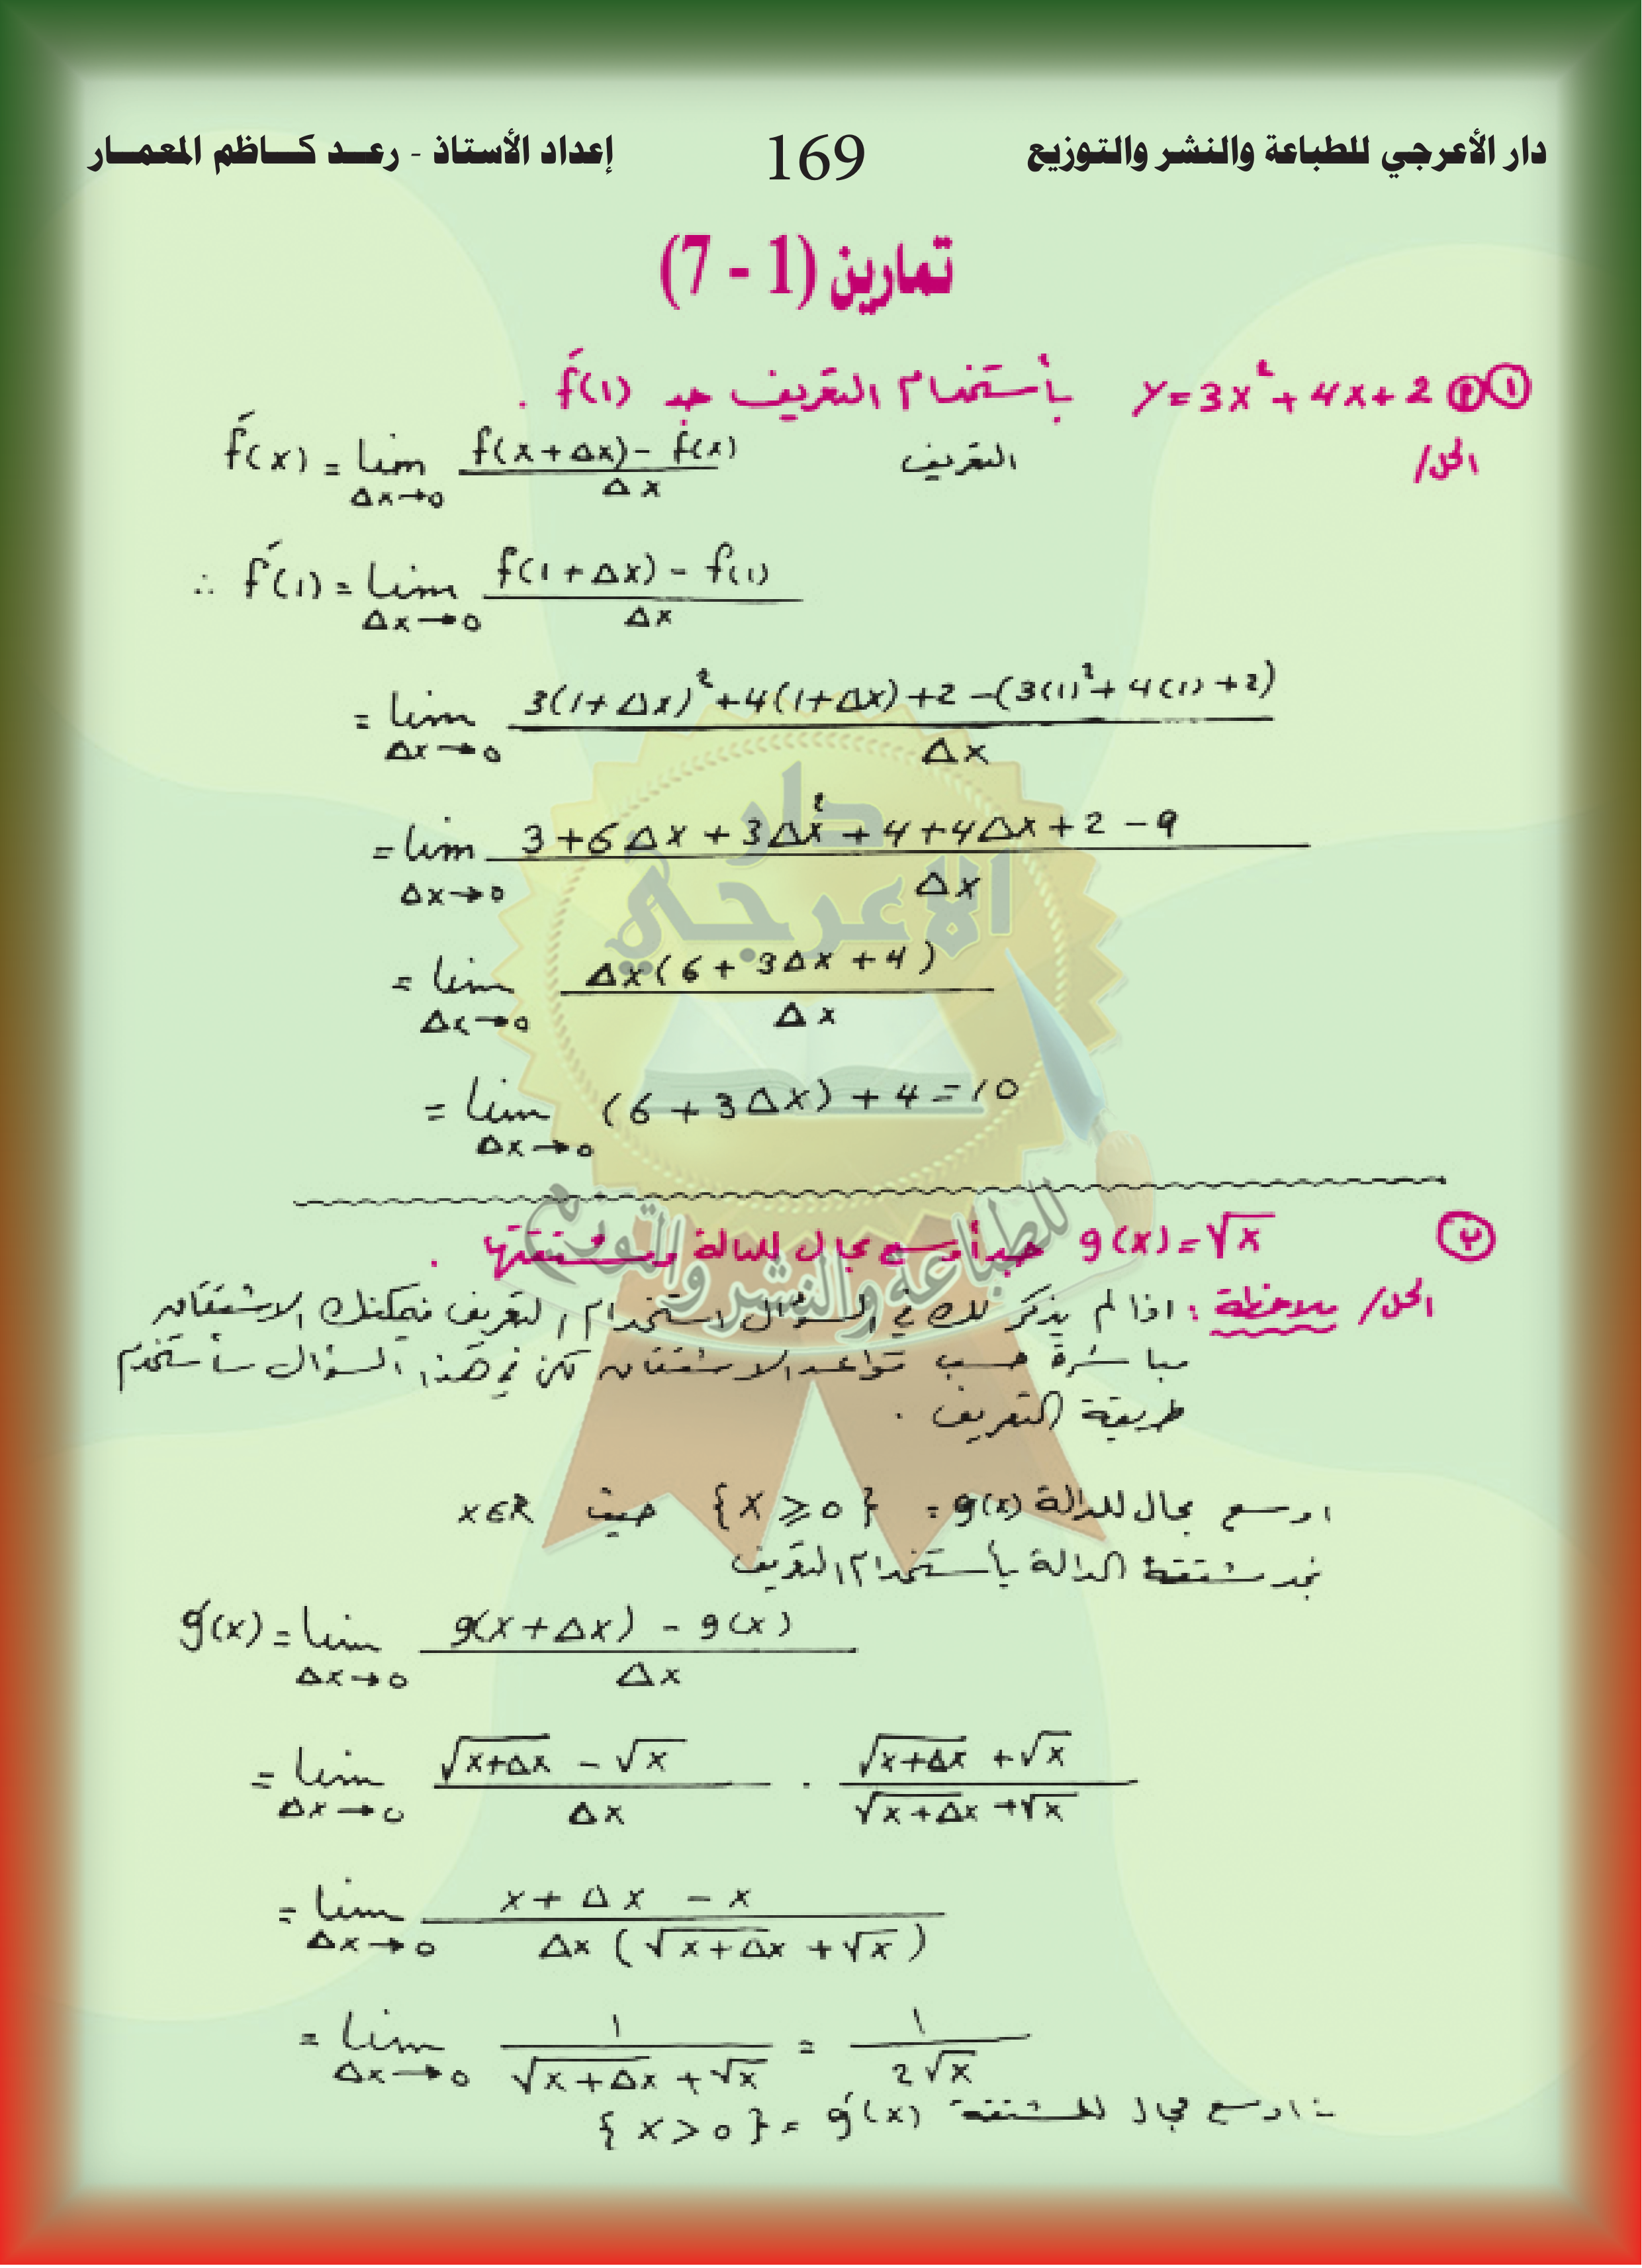 دار الأعرجي للطباعة والنشر والتوزيع 169 إعداد الأستاذ - رعـد كـاظم المعمـار
تمارين (1 - 7)
① P y = 3x² + 4x + 2 بأستخدام التعريف جد f́(1) .
الحل/ التعريف f́(x) = lim Δx→0 (f(x+Δx) - f(x)) / Δx
∴ f́(1) = lim Δx→0 (f(1+Δx) - f(1)) / Δx
= lim Δx→0 (3(1+Δx)² + 4(1+Δx) + 2 - (3(1)² + 4(1) + 2)) / Δx
= lim Δx→0 (3 + 6Δx + 3Δx² + 4 + 4Δx + 2 - 9) / Δx
= lim Δx→0 Δx(6 + 3Δx + 4) / Δx
= lim Δx→0 (6 + 3Δx) + 4 = 10
دار
الاعرجي
للطباعة والنشر والتوزيع
② g(x) = √x جد أوسع مجال للدالة ومشتقتها .
الحل/ ملاحظة : اذا لم يذكر لك في السؤال استخدام التعريف فيمكنك الاشتقاق
مباشرة حسب قواعد الاشتقاق لكن في هذا السؤال سأستخدم
طريقة التعريف .
اوسع مجال للدالة g(x) = {x ≥ 0} حيث x∈R
نجد مشتقة الدالة بأستخدام التعريف
ǵ(x) = lim Δx→0 (g(x+Δx) - g(x)) / Δx
= lim Δx→0 (√(x+Δx) - √x) / Δx · (√(x+Δx) + √x) / (√(x+Δx) + √x)
= lim Δx→0 (x + Δx - x) / (Δx(√(x+Δx) + √x))
= lim Δx→0 1 / (√(x+Δx) + √x) = 1 / (2√x)
∴ اوسع مجال للمشتقة ǵ(x) = {x > 0}